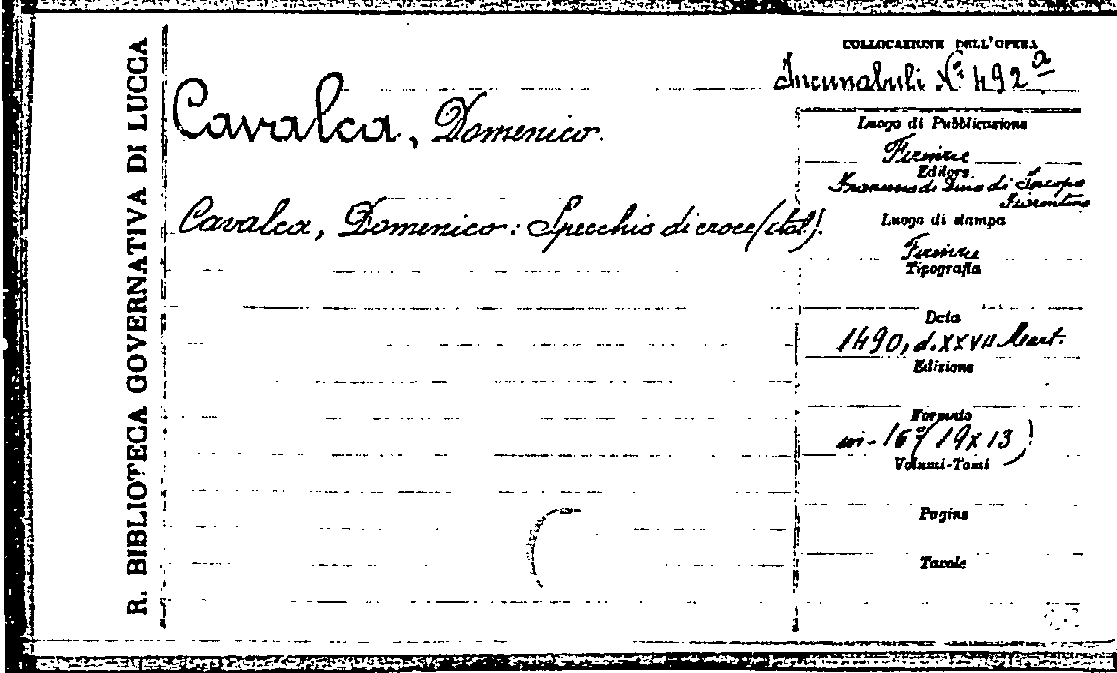 R. BIBLIOTECA GOVERNATIVA DI LUCCA
COLLOCAZIONE DELL'OPERA
Incunabuli N.° 492 a
Cavalca, Domenico.
Cavalca, Domenico: Specchio di croce (ital).
Luogo di Pubblicazione
Firenze
Editore
Francesco di Dino di Jacopo
Fiorentino
Luogo di stampa
Firenze
Tipografia
Data
1490, d. XXVII Mart.
Edizione
Formato
in-16° (19 x 13)
Volumi-Tomi
Pagine
Tavole